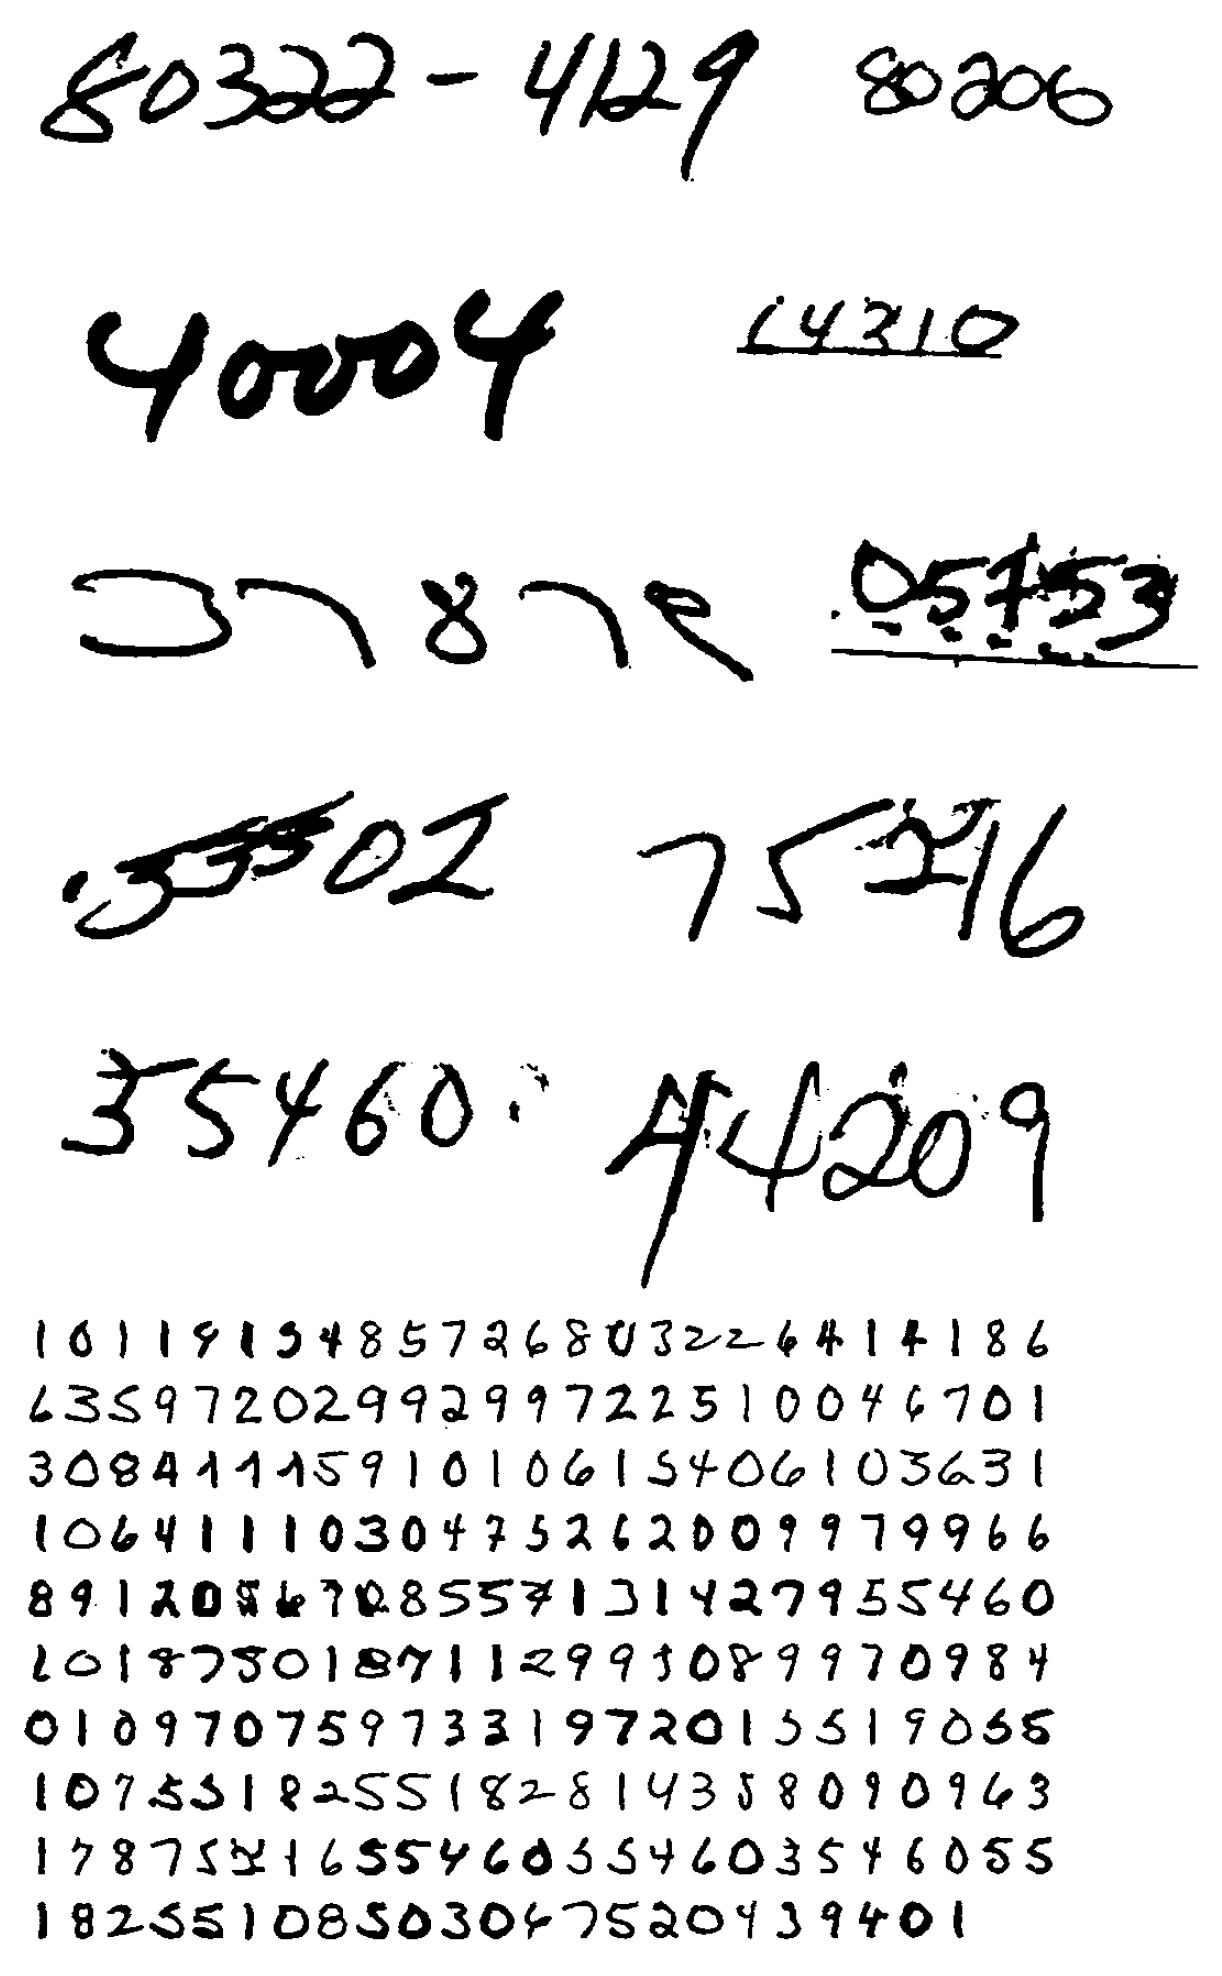 80322-4129 80206
40004 14310
37879 05753
35502 75216
35460 44209
1011913485726803226414186
6359720299299722510046701
3084111591010615406103631
1064111030475262009979966
8912056708557131427955460
2018750187112993089970984
0109707597331972015519055
1075518255182814358090963
1787521655460554603546055
18255108503047520439401